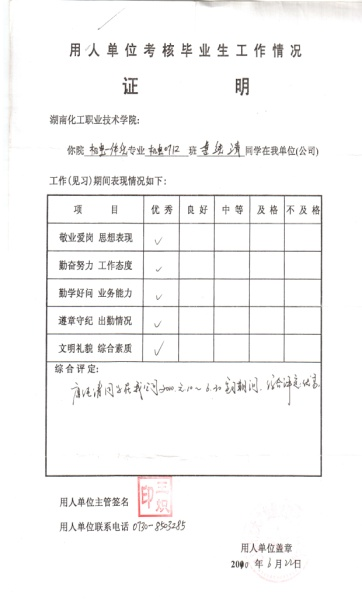 用人单位考核毕业生工作情况
证 明
湖南化工职业技术学院:
你院 机电一体化 专业 机电0712 班 同学在我单位(公司)
工作(见习)期间表现情况如下:
项 目 优秀 良好 中等 及格 不及格
敬业爱岗 思想表现 ✓
勤奋努力 工作态度 ✓
勤学好问 业务能力 ✓
遵章守纪 出勤情况 ✓
文明礼貌 综合素质 ✓
综合评定:
同学在我公司 期间,综合评定优秀
用人单位主管签名
用人单位联系电话 0730-8503285
用人单位盖章
2010 年 6 月 22 日